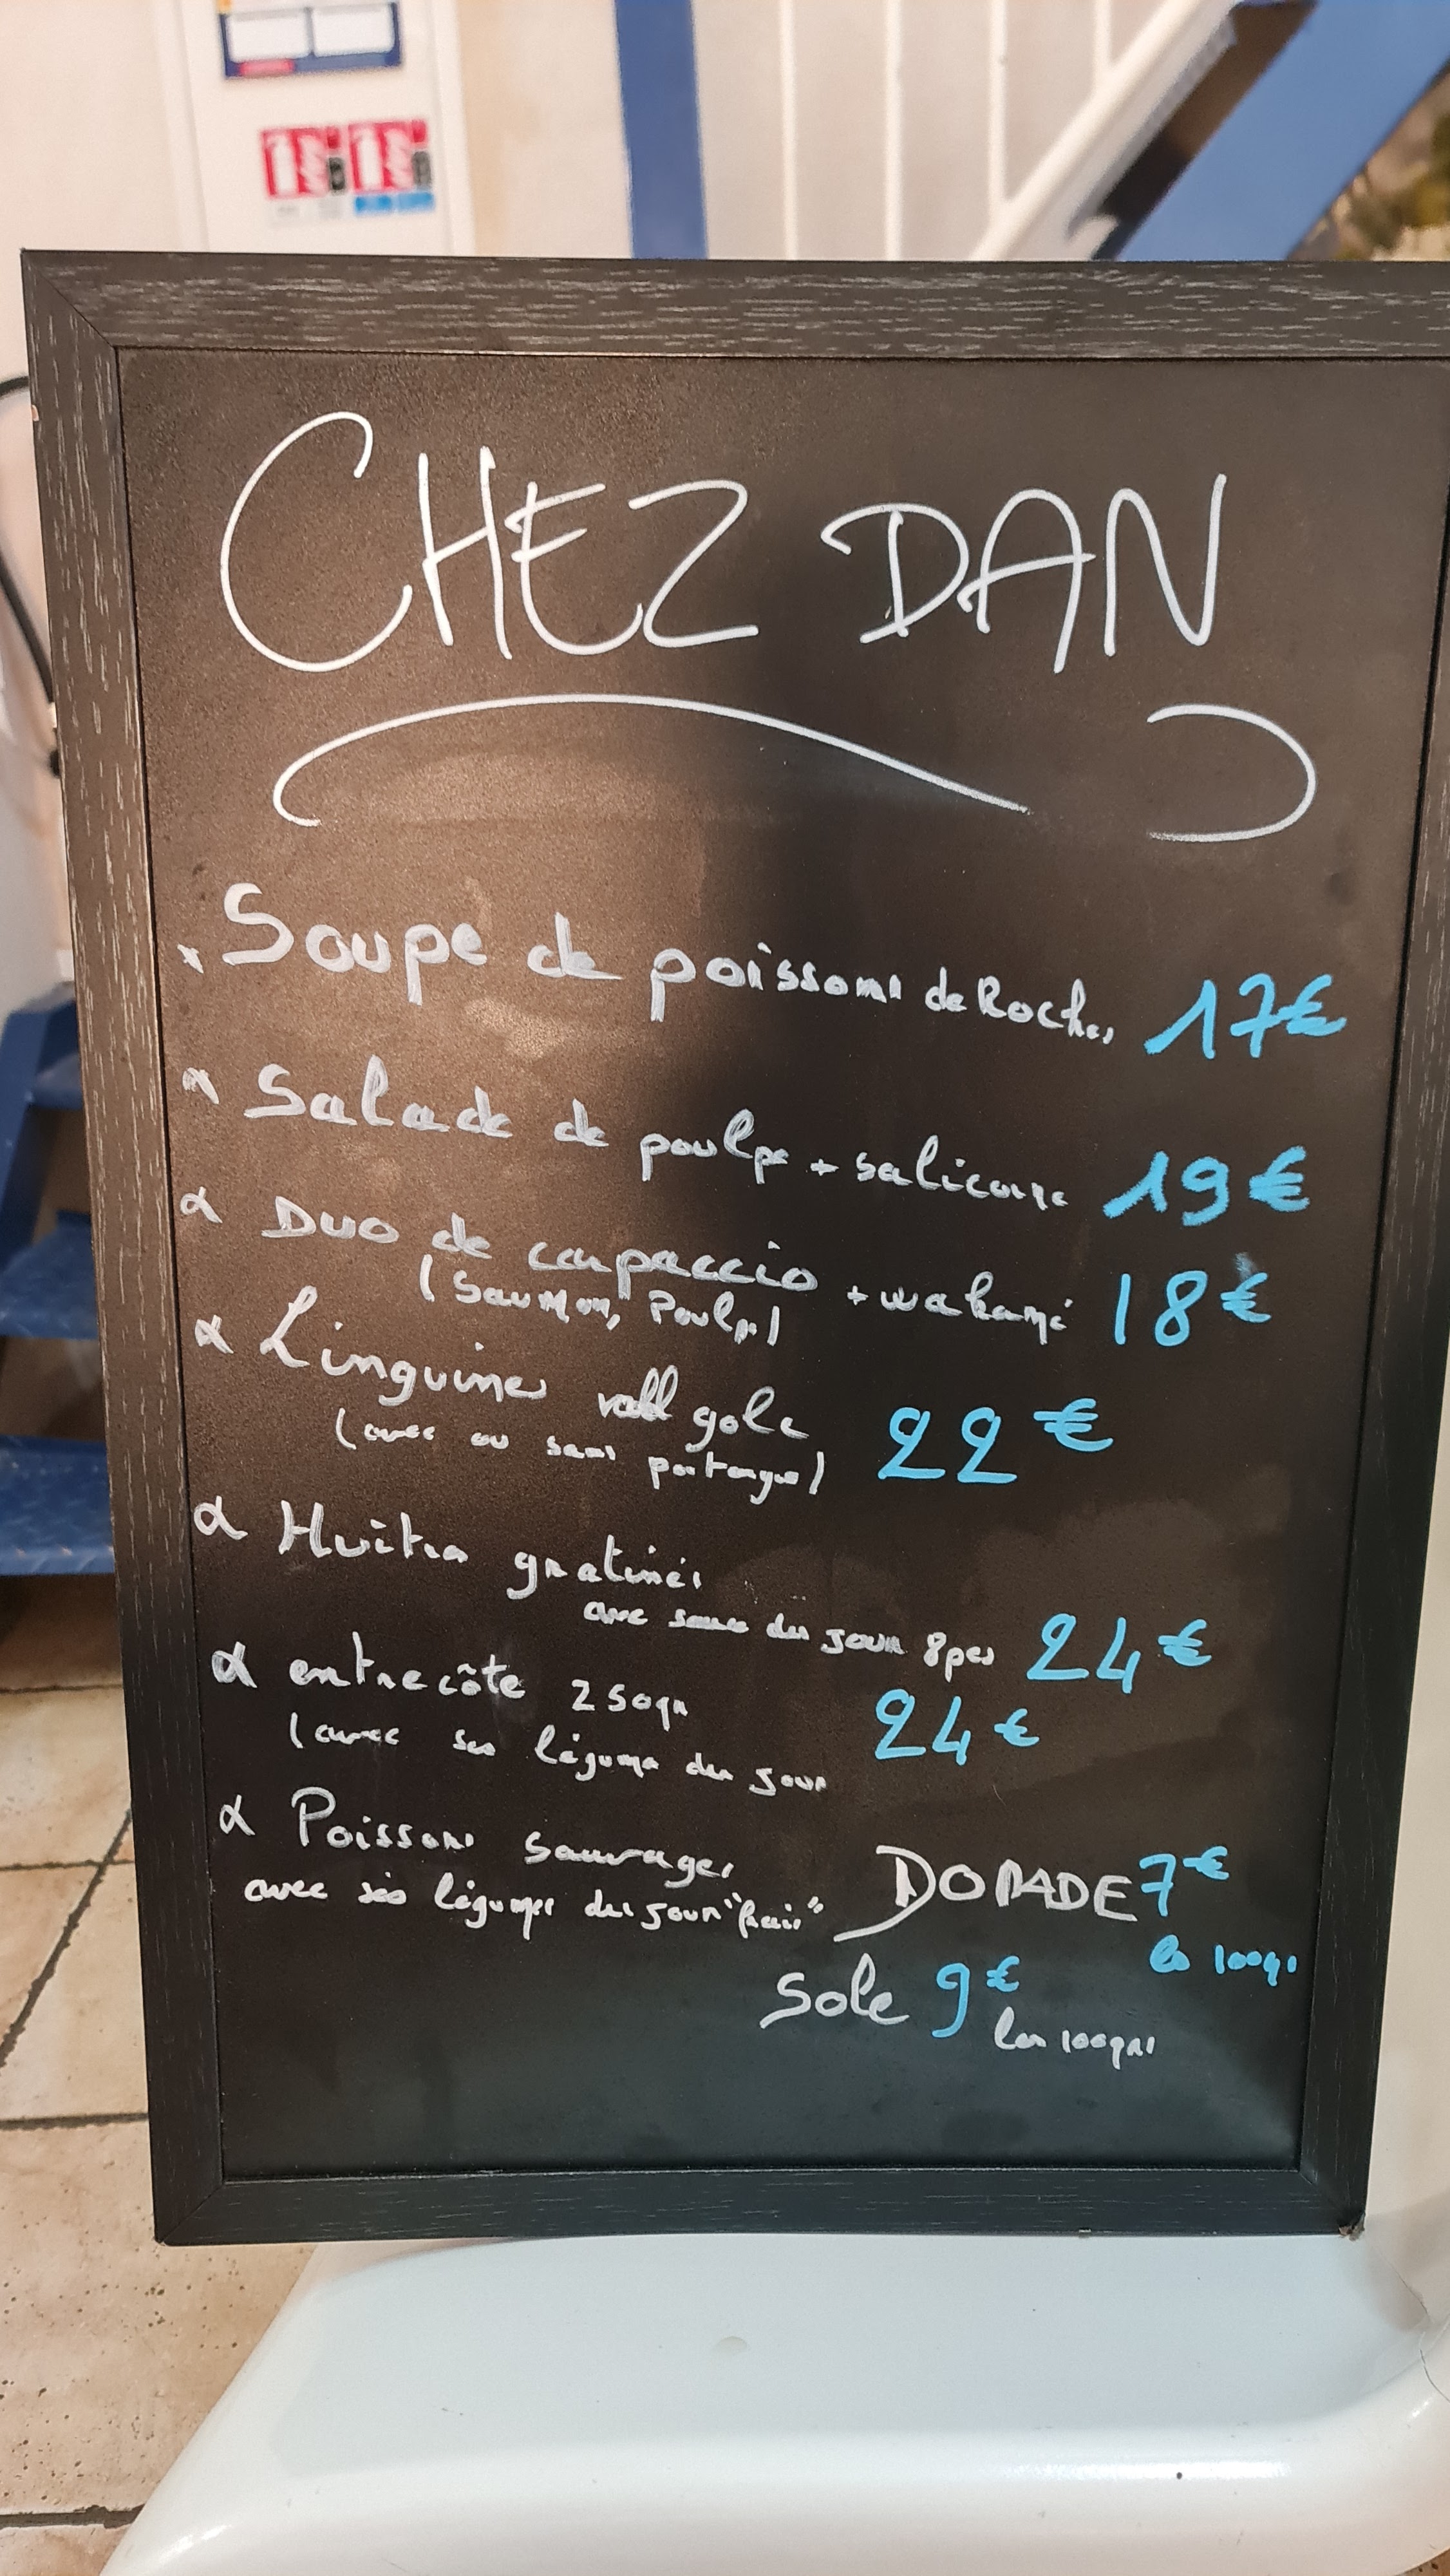 CHEZ DAN
Soupe de poissons de Roches 17€
Salade de poulpe + salicorne 19€
DUO de carpaccio + wakamé 18€
(Saumon, Poulpe)
Linguines gole 22€
(avec ou sans partage)
Huîtres gratinées
avec sauce du jour 8pcs 24€
entrecôte 250gr 24€
(avec ses légumes du jour
Poissons sauvages DORADE 7€
avec ses légumes du jour "frais" les 100gr
Sole 9€
les 100grs